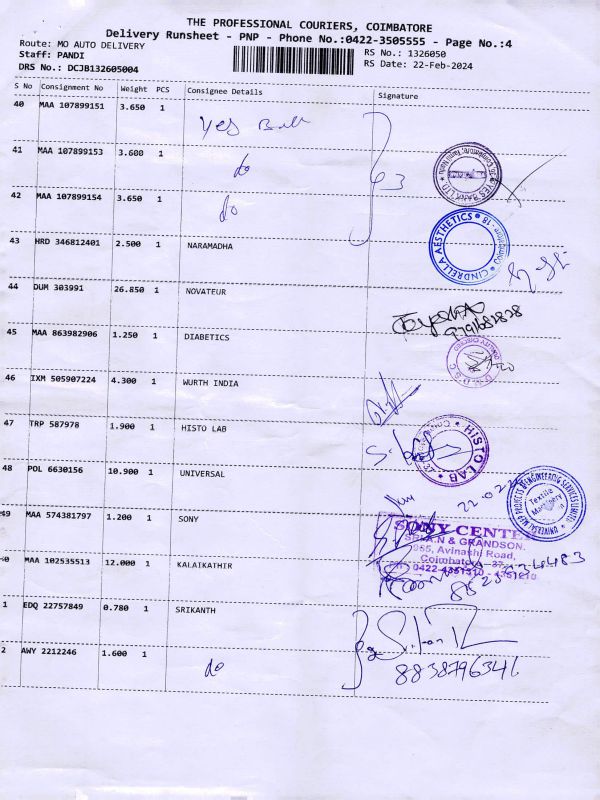 THE PROFESSIONAL COURIERS, COIMBATORE
Delivery Runsheet - PNP - Phone No.:0422-3505555 - Page No.:4
Route: MO AUTO DELIVERY
Staff: PANDI
DRS No.: DCJB132605004
RS No.: 1326050
RS Date: 22-Feb-2024
S No Consignment No Weight PCS Consignee Details Signature
40 MAA 107899151 3.650 1 Yes Bank
41 MAA 107899153 3.600 1 do
YES BANK LTD
42 MAA 107899154 3.650 1 do
CINDRELLA AESTHETICS
43 HRD 346812401 2.500 1 NARAMADHA
44 DUM 303991 26.850 1 NOVATEUR
45 MAA 863982906 1.250 1 DIABETICS
46 IXM 505907224 4.300 1 WURTH INDIA
47 TRP 587978 1.900 1 HISTO LAB
HISTO LAB
48 POL 6630156 10.900 1 UNIVERSAL
UNIVERSAL MEP PROJECTS & ENGINEERING SERVICES LIMITED
Textile
49 MAA 574381797 1.200 1 SONY
SONY CENTER
& GRANDSON.
Avinashi Road,
Coimbatore - 37
0 MAA 102535513 12.000 1 KALAIKATHIR
1 EDQ 22757849 0.780 1 SRIKANTH
2 AWY 2212246 1.600 1 do
8838796341